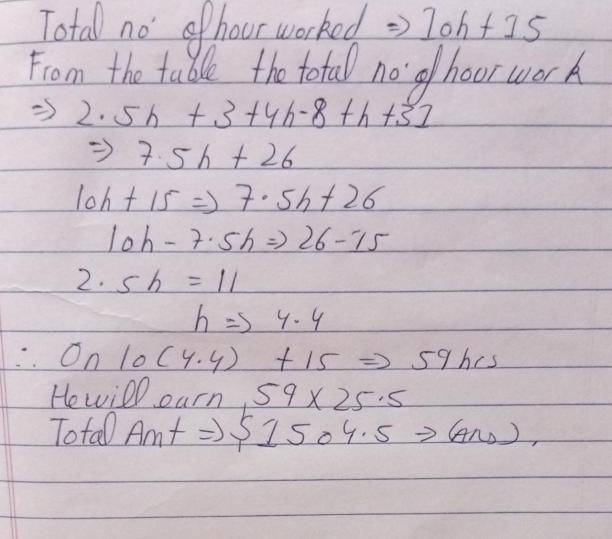 Total no. of hour worked => 10h + 15
From the table the total no. of hour work
=> 2.5h + 3 + 4h - 8 + h + 31
=> 7.5h + 26
10h + 15 => 7.5h + 26
10h - 7.5h => 26 - 15
2.5h = 11
h => 4.4
∴ On 10(4.4) + 15 => 59 hrs
He will earn 59 × 25.5
Total Amt => $1504.5 => (Ans).